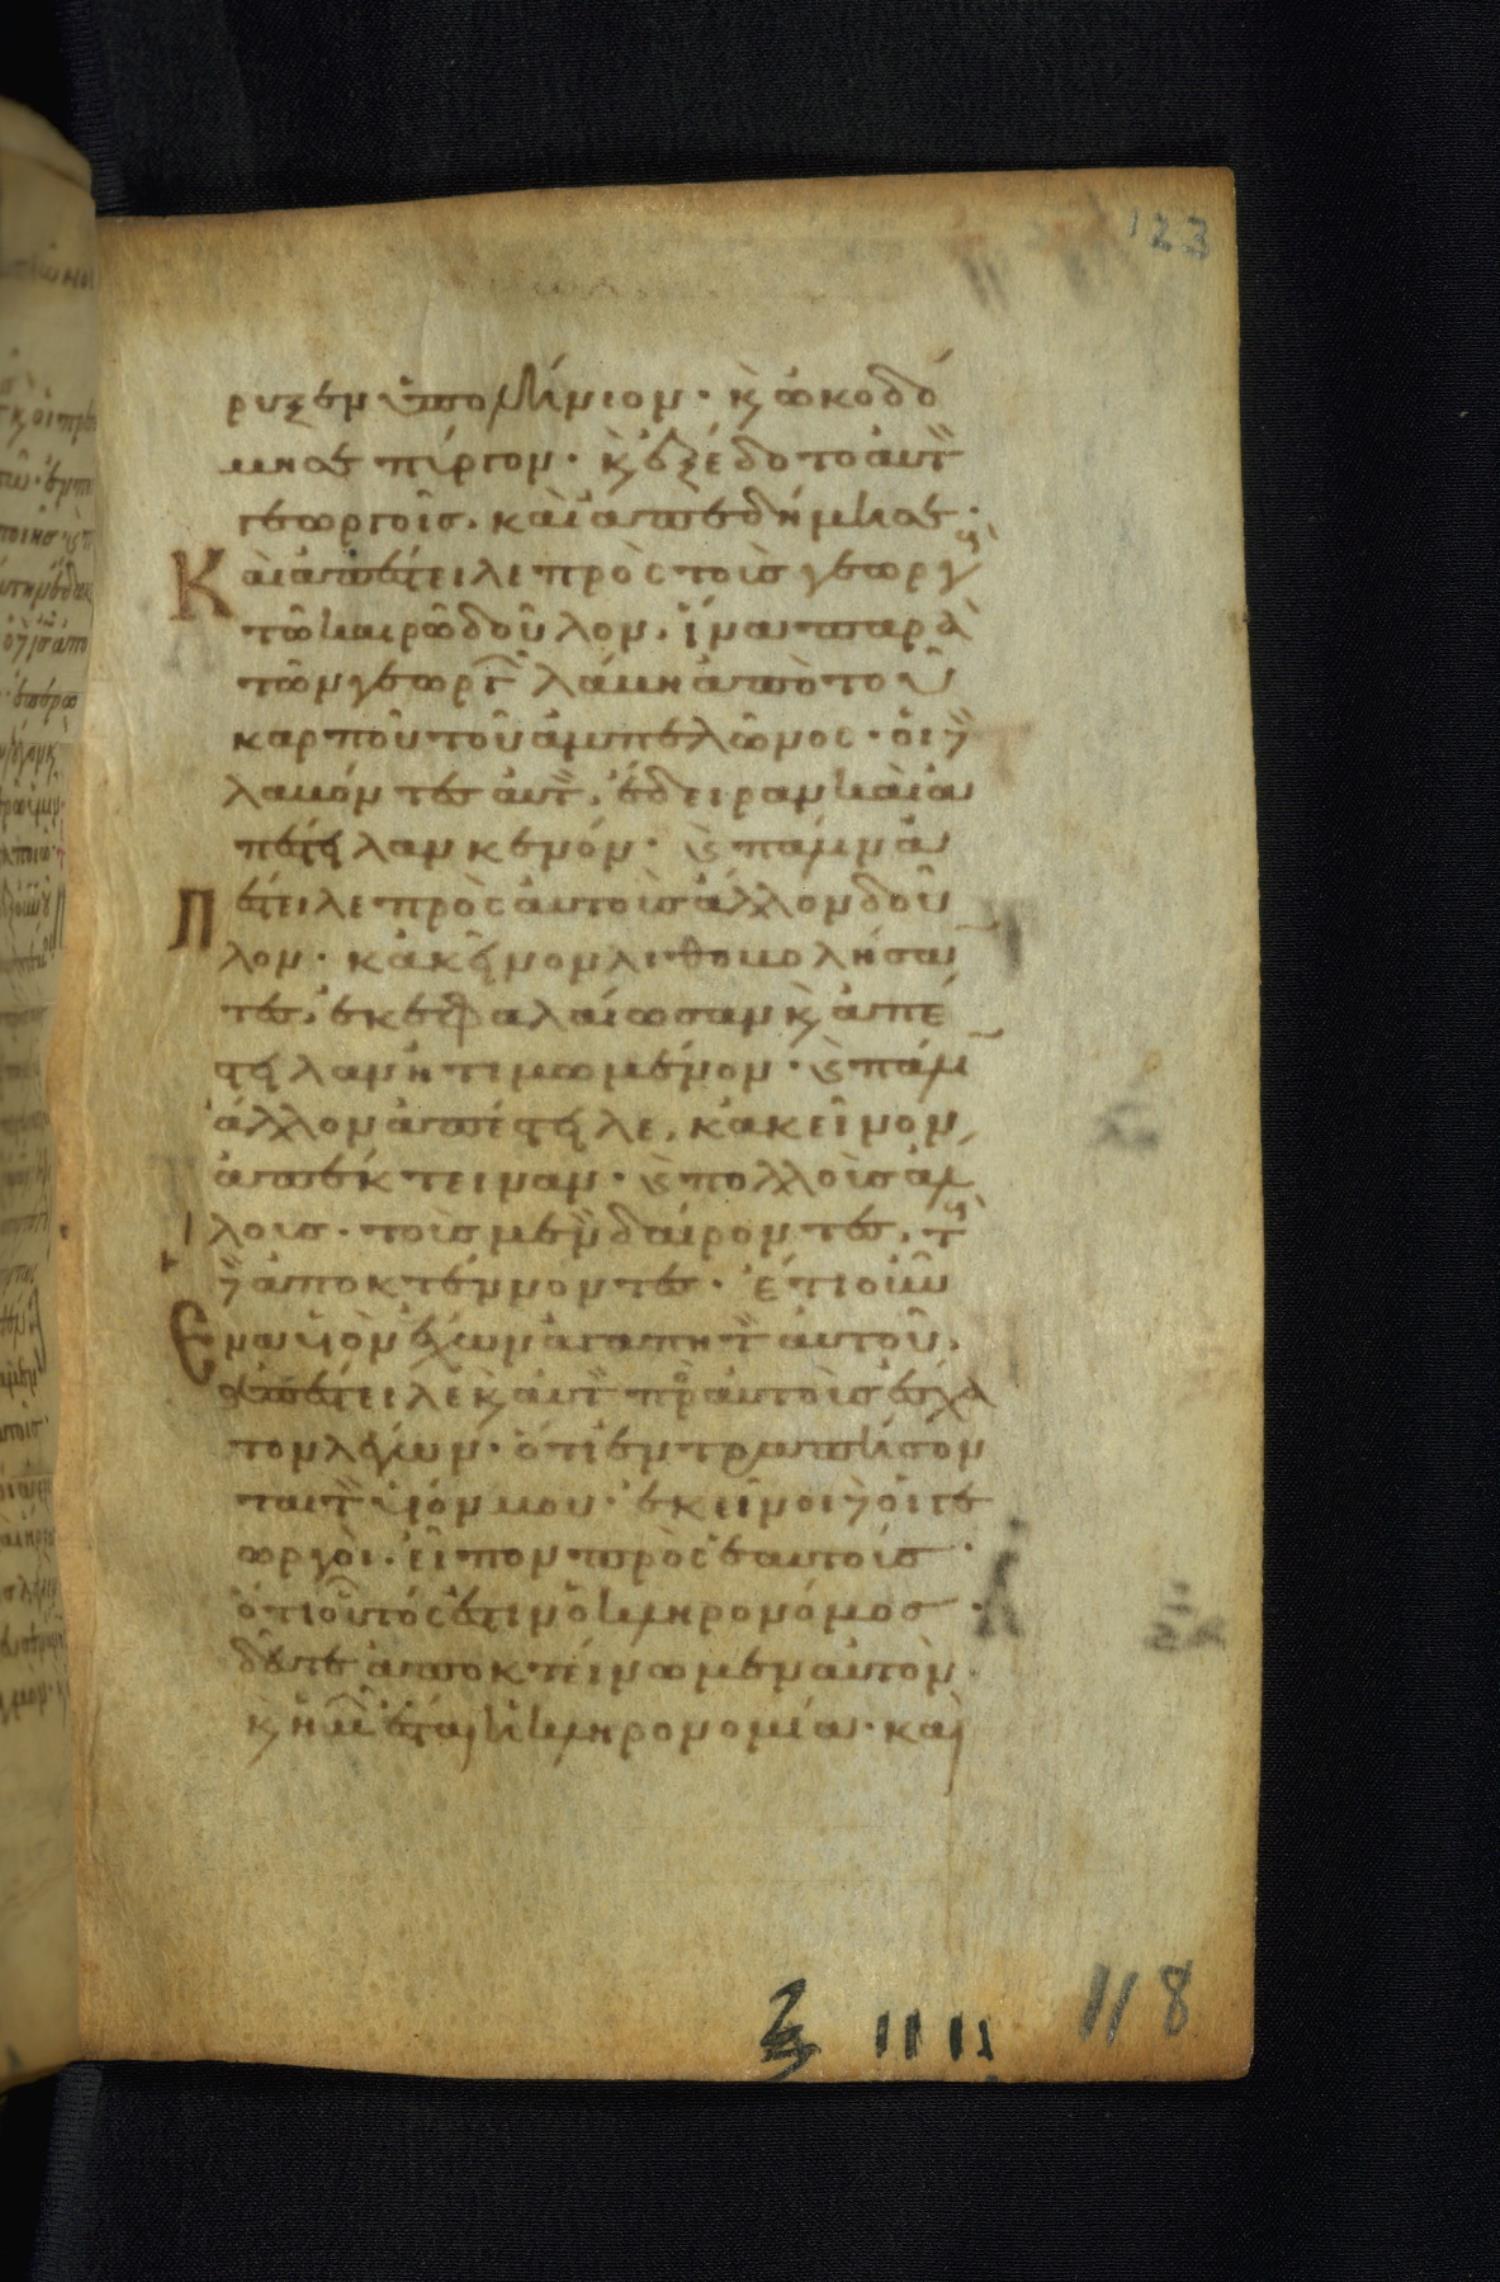 123
ρυξεν ὑπολήνιον· κ̀ ὠκοδό
μησε πύργον· κ̀ ἐξέδοτο ἀυτ
γεωργοῖς. καὶ ἀπεδήμησε·
Καὶ ἀπέστειλε πρὸς τοὺς γεωργ
τῶ καιρῶ δοῦλον. ἵνα παρὰ
τῶν γεωργ λάβη ἀπὸ τοῦ
καρποῦ τοῦ ἀμπελῶνος· οἱ δ
λαβόντες ἀυτ, ἔδειραν καὶ ἀ
πέστειλαν κενόν· κ̀ πάλιν ἀ
Πέστειλε πρὸς ἀυτοὺς ἄλλον δοῦ
λον· κἀκεῖνον λιθοβολήσαν
τες, ἐκεφαλαίωσαν κ̀ ἀπέ
στειλαν ἠτιμωμένον· κ̀ πάλιν
ἄλλον ἀπέστειλε, κἀκεῖνον
ἀπέκτειναν· κ̀ πολλοὺς ἄλ
λους· τοὺς μὲν δαίροντες, τ
δ ἀποκτέννοντες· ἔτι οὖν
Ενα υἱὸν ἔχων ἀγαπητ ἀυτοῦ.
ἀπέστειλε κ̀ ἀυτ πρ ἀυτοὺς ἔσχα
τον λέγων· ὅτι ἐντραπήσον
ται τ υἱόν μου· ἐκεῖνοι δ οἱ γε
ωργοὶ. εἶπον πρὸς ἑαυτούς·
ὅτι οὗτός ἐστιν ὁ κληρονόμος·
δεῦτε ἀποκτείνωμεν ἀυτὸν·
κ̀ ἡμ ἔσται ἡ κληρονομία· καὶ
118